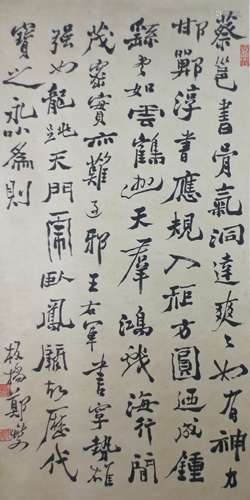 蔡邕書骨氣洞達爽爽如有神力
邯鄲淳書應規入矩方圓迺成鍾
繇書如雲鶴遊天羣鴻戲海行間
茂密實亦難過邪王右軍書字勢雄
强如龍跳天門虎臥鳳闕故歷代
寶之永以爲則
板橋鄭燮